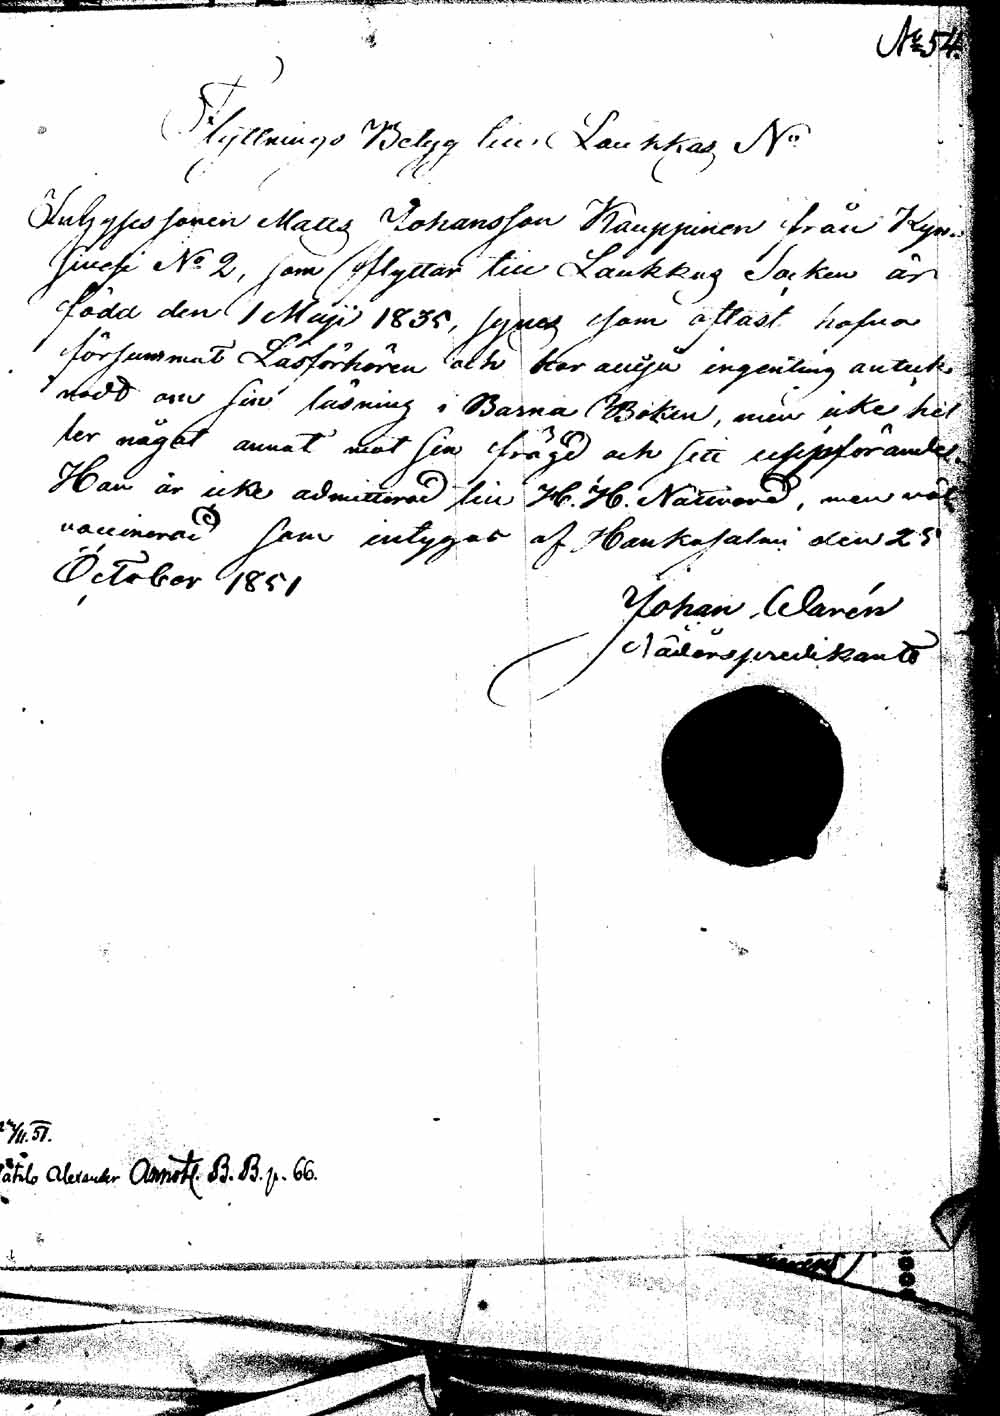 No 54.
Flyttnings Betyg till Laukkas No
Inhyses sonen Matts Johansson Kauppinen från Kyn-
siveli No 2, som flyttar till Laukkas Socken är
född den 1 Maji 1835, synes som oftast hafva
försummat Läsförhören och har ännu ingenting anteck-
nadt om sin läsning i Barna Boken, men icke hel
ler något annat mot sin frägd och sitt uppförande.
Han är icke admitterad till H. H. Nattvard, men väl
vaccinerad som intygas af Hankasalmi den 25
October 1851
Johan Clarén
Nådårspredikant
/11. 51.
Alexander Annotl. B. B. p. 66.